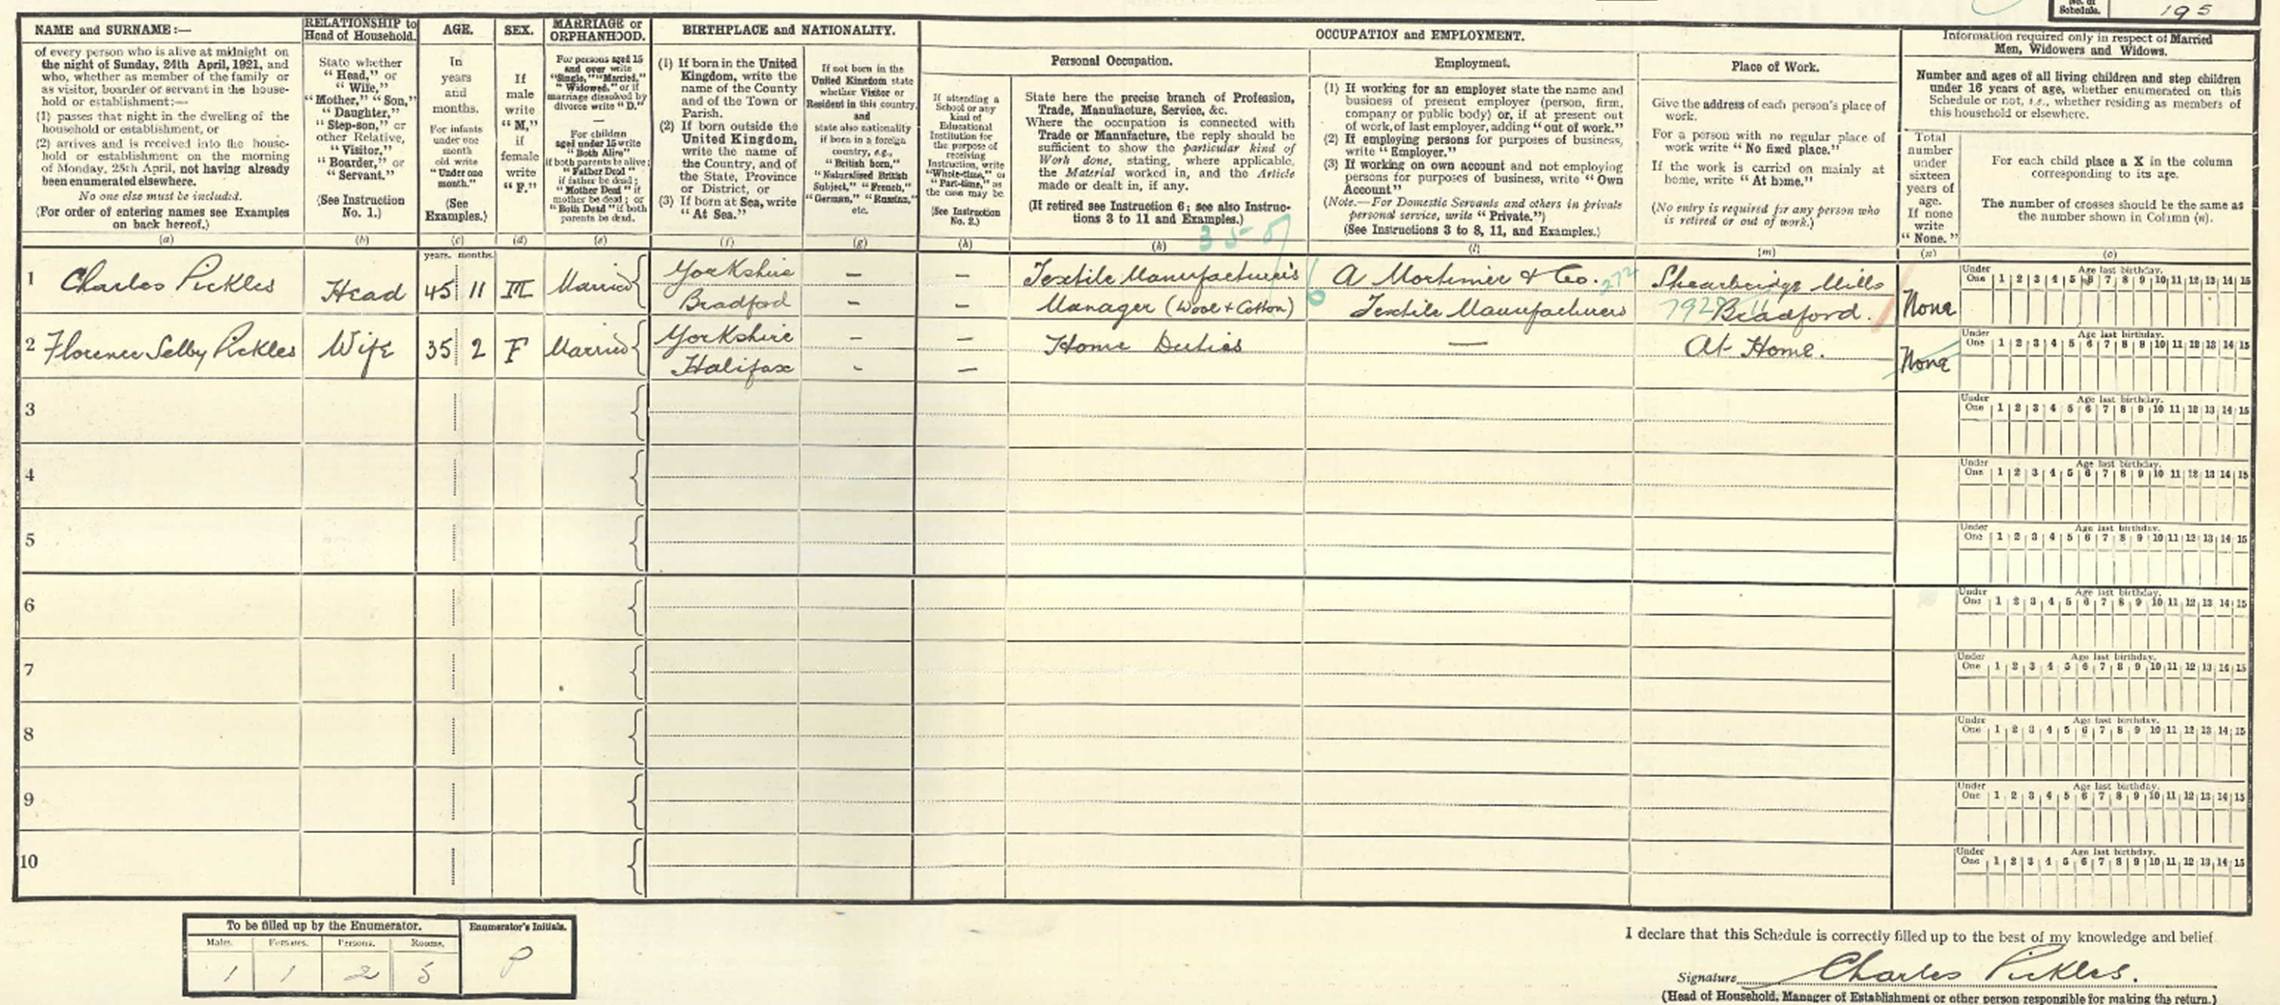 No. of
Schedule. 195
NAME and SURNAME:—
of every person who is alive at midnight on
the night of Sunday, 24th April, 1921, and
who, whether as member of the family or
as visitor, boarder or servant in the house-
hold or establishment:—
(1) passes that night in the dwelling of the
household or establishment, or
(2) arrives and is received into the house-
hold or establishment on the morning
of Monday, 25th April, not having already
been enumerated elsewhere.
No one else must be included.
(For order of entering names see Examples
on back hereof.)
(a)
RELATIONSHIP to
Head of Household.
State whether
"Head," or
"Wife,"
"Mother," "Son,"
"Daughter,"
"Step-son," or
other Relative,
"Visitor,"
"Boarder," or
"Servant."
(See Instruction
No. 1.)
(b)
AGE.
In
years
and
months.
For infants
under one
month
old write
"Under one
month."
(See
Examples.)
(c)
years. months.
SEX.
If
male
write
"M,"
if
female
write
"F."
(d)
MARRIAGE or
ORPHANHOOD.
For persons aged 15
and over write
"Single," "Married,"
"Widowed," or if
marriage dissolved by
divorce write "D."
For children
aged under 15 write
"Both Alive"
if both parents be alive;
"Father Dead"
if father be dead;
"Mother Dead" if
mother be dead; or
"Both Dead" if both
parents be dead.
(e)
BIRTHPLACE and NATIONALITY.
(1) If born in the United
Kingdom, write the
name of the County
and of the Town or
Parish.
(2) If born outside the
United Kingdom,
write the name of
the Country, and of
the State, Province
or District, or
(3) If born at Sea, write
"At Sea."
(f)
If not born in the
United Kingdom state
whether Visitor or
Resident in this country,
and
state also nationality
if born in a foreign
country, e.g.,
"British born,"
"Naturalised British
Subject," "French,"
"German," "Russian,"
etc.
(g)
OCCUPATION and EMPLOYMENT.
If attending a
School or any
kind of
Educational
Institution for
the purpose of
receiving
Instruction, write
"Whole-time," or
"Part-time," as
the case may be.
(See Instruction
No. 2.)
(h)
Personal Occupation.
State here the precise branch of Profession,
Trade, Manufacture, Service, &c.
Where the occupation is connected with
Trade or Manufacture, the reply should be
sufficient to show the particular kind of
Work done, stating, where applicable,
the Material worked in, and the Article
made or dealt in, if any.
(If retired see Instruction 6; see also Instruc-
tions 3 to 11 and Examples.)
(k)
Employment.
(1) If working for an employer state the name and
business of present employer (person, firm,
company or public body) or, if at present out
of work, of last employer, adding "out of work."
(2) If employing persons for purposes of business,
write "Employer."
(3) If working on own account and not employing
persons for purposes of business, write "Own
Account."
(Note.—For Domestic Servants and others in private
personal service, write "Private.")
(See Instructions 3 to 8, 11, and Examples.)
(l)
Place of Work.
Give the address of each person's place of
work.
For a person with no regular place of
work write "No fixed place."
If the work is carried on mainly at
home, write "At home."
(No entry is required for any person who
is retired or out of work.)
(m)
Information required only in respect of Married
Men, Widowers and Widows.
Number and ages of all living children and step children
under 16 years of age, whether enumerated on this
Schedule or not, i.e., whether residing as members of
this household or elsewhere.
Total
number
under
sixteen
years of
age.
If none
write
"None."
(n)
For each child place a X in the column
corresponding to its age.
The number of crosses should be the same as
the number shown in Column (n).
(o)
1 Charles Pickles Head 45 11 M Married Yorkshire — — Textile Manufacturer's A Mortimer & Co. 272 Shearbridge Mills None
Bradford — — Manager (Wool & Cotton) 6 Textile Manufacturers Bradford.
Under One 1 2 3 4 5 6 7 8 9 10 11 12 13 14 15
Age last birthday.
2 Florence Selby Pickles Wife 35 2 F Married Yorkshire — — Home Duties — At Home. None
Halifax - —
Under One 1 2 3 4 5 6 7 8 9 10 11 12 13 14 15
Age last birthday.
3
Under One 1 2 3 4 5 6 7 8 9 10 11 12 13 14 15
Age last birthday.
4
Under One 1 2 3 4 5 6 7 8 9 10 11 12 13 14 15
Age last birthday.
5
Under One 1 2 3 4 5 6 7 8 9 10 11 12 13 14 15
Age last birthday.
6
Under One 1 2 3 4 5 6 7 8 9 10 11 12 13 14 15
Age last birthday.
7
Under One 1 2 3 4 5 6 7 8 9 10 11 12 13 14 15
Age last birthday.
8
Under One 1 2 3 4 5 6 7 8 9 10 11 12 13 14 15
Age last birthday.
9
Under One 1 2 3 4 5 6 7 8 9 10 11 12 13 14 15
Age last birthday.
10
Under One 1 2 3 4 5 6 7 8 9 10 11 12 13 14 15
Age last birthday.
To be filled up by the Enumerator.
Males. Females. Persons. Rooms.
1 1 2 5
Enumerator's Initials.
P
I declare that this Schedule is correctly filled up to the best of my knowledge and belief
Signature Charles Pickles.
(Head of Household, Manager of Establishment or other person responsible for making the return.)